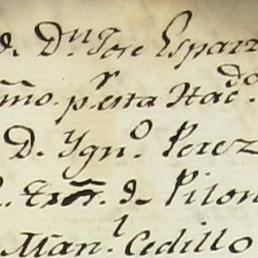 de Dn Jose Esparz
mo. pr esta Hacdo.
D. Ygno. Perez
de Pilon
Manl. Cedillo